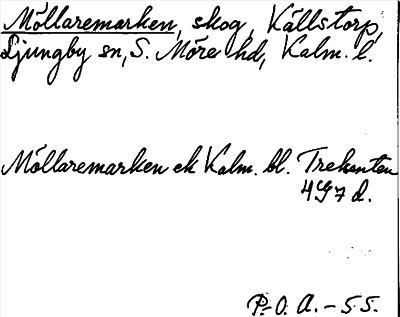 Möllaremarken, skog, Källstorp,
Ljungby sn, S. Möre hd, Kalm. l.
Möllaremarken ek Kalm. bl. Trekanten
4G7d.
P.-O. A. - 55.